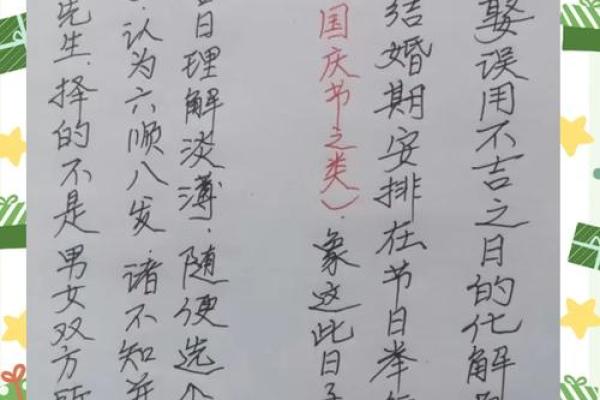 娶误用不吉之日的化解
结婚期安排在节日举
国庆节之类)、象这此日子
日理解淡薄,随便选个
认为六顺八发,诸不知并
先生,择的不是男女双方所